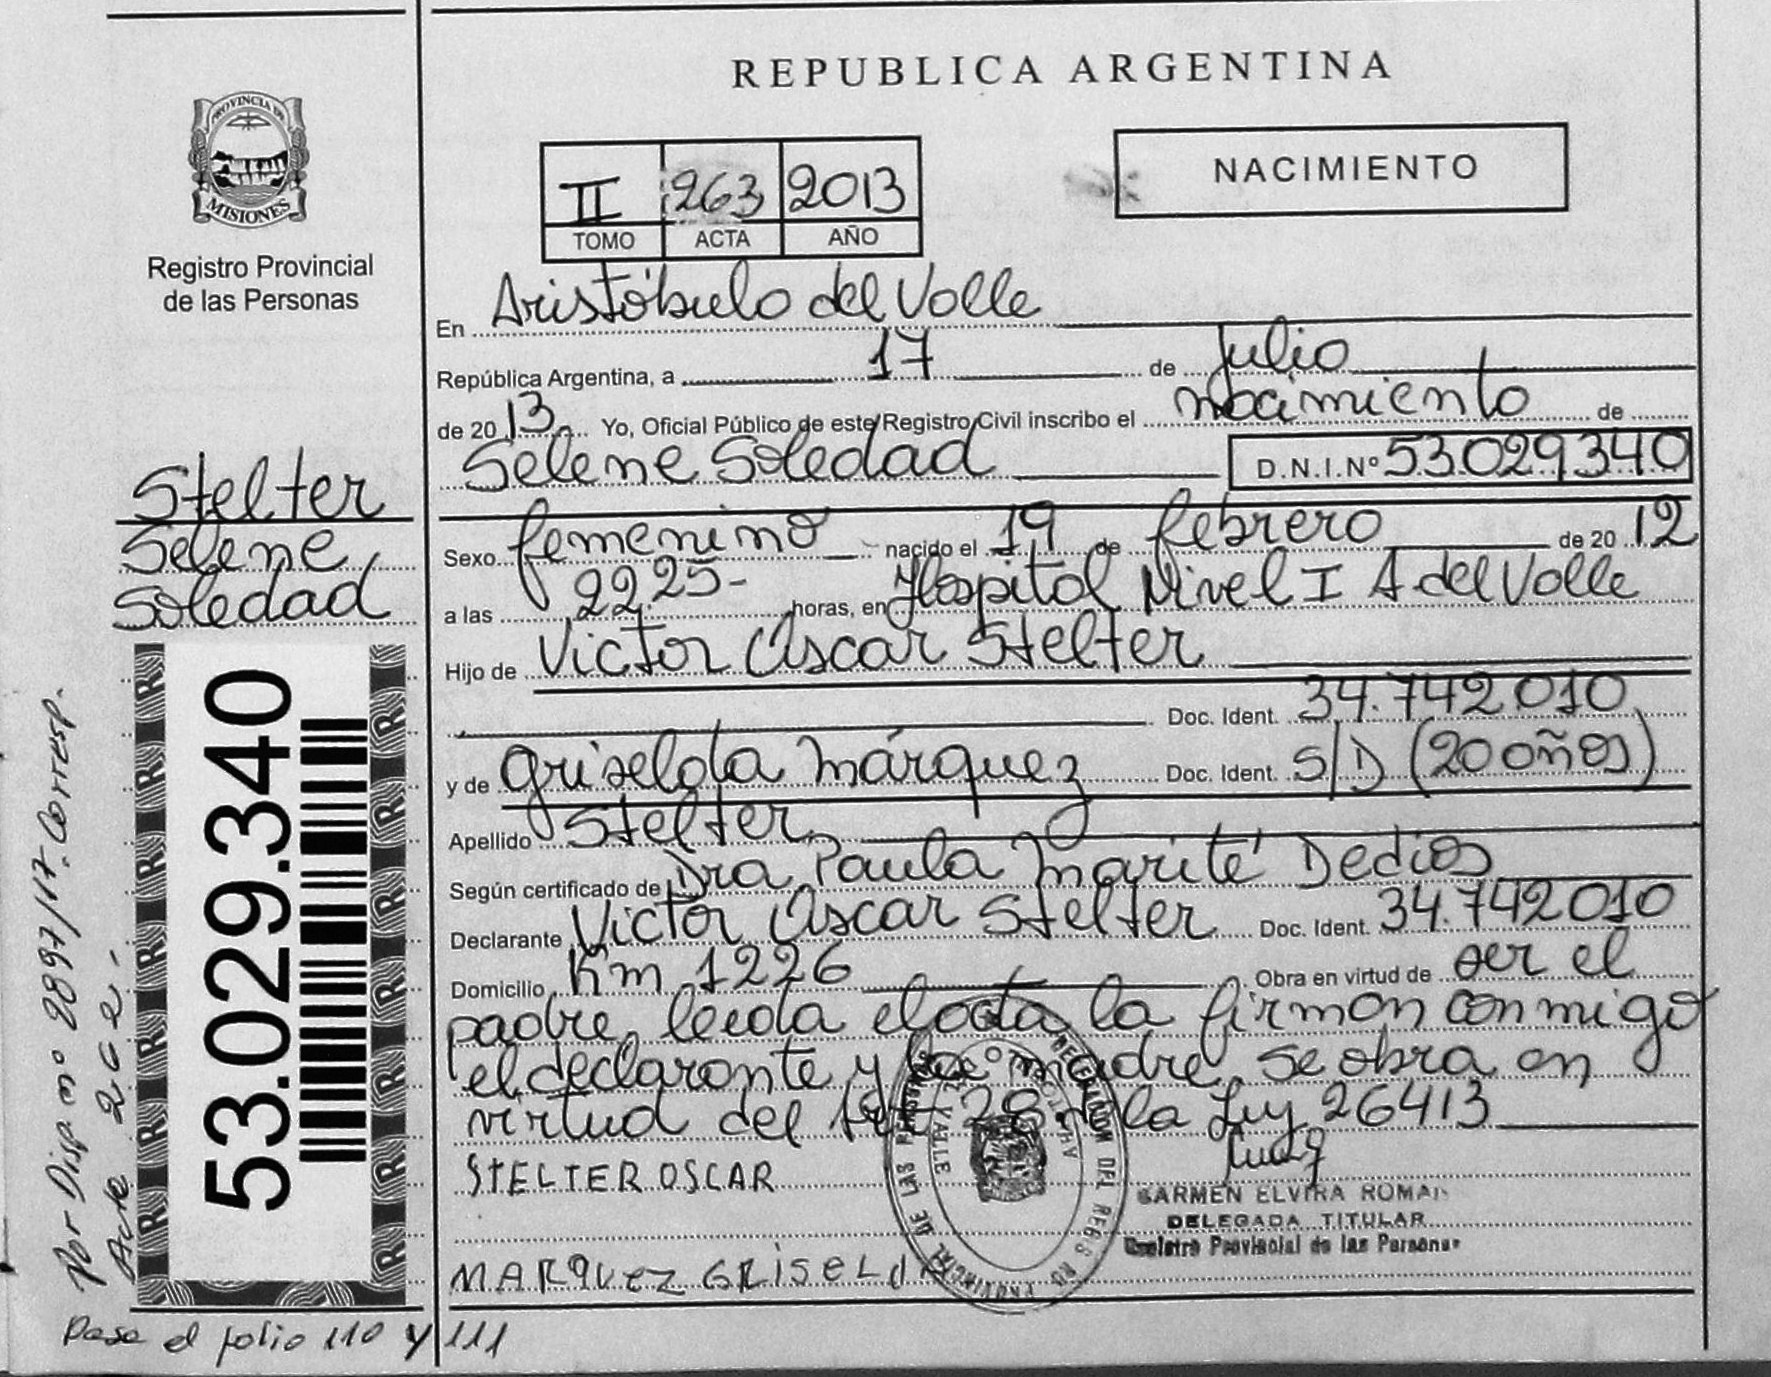 REPUBLICA ARGENTINA
PROVINCIA DE
MISIONES
Registro Provincial
de las Personas
NACIMIENTO
II 263 2013
TOMO ACTA AÑO
En Aristóbulo del Valle
República Argentina, a 17 de Julio
de 2013 Yo, Oficial Público de este Registro Civil inscribo el nacimiento de
Selene Soledad D.N.I.Nº 53.029.340
Stelter
Selene
Soledad
Sexo femenino nacido el 19 de febrero de 2012
a las 22.25- horas, en Hospital Nivel I A del Valle
Hijo de Victor Oscar Stelter
Doc. Ident. 34.742.010
y de Griselda Márquez Doc. Ident. S/D (20 años)
Apellido Stelter
Según certificado de Dra Paula Marité Dedios
Declarante Victor Oscar Stelter Doc. Ident. 34.742010
Domicilio Km 1226 Obra en virtud de ser el
padre, leída el acta la firman conmigo
el declarante y la madre, se obra en
virtud del Art 28 de la Ley 26413
STELTER OSCAR
CARMEN ELVIRA ROMAN
DELEGADA TITULAR
Registro Provincial de las Personas
MARQUEZ GRISELDA
53.029.340
Por Disp. nº 2897/17. Corresp.
Acta
Pasa al folio 110 y 111